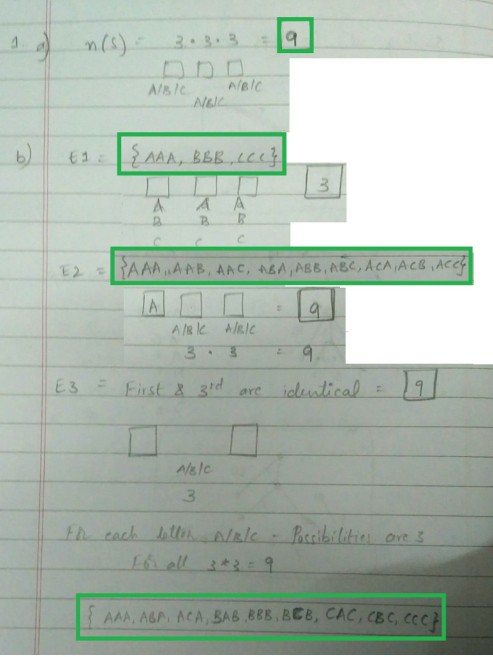 1. a) n(S) = 3 · 3 · 3 = 9
A/B/C A/B/C
A/B/C
b) E1 = { AAA, BBB, CCC}
3
A A A
B B B
C C C
E2 = {AAA, AAB, AAC, ABA, ABB, ABC, ACA, ACB, ACC}
A = 9
A/B/C A/B/C
3 · 3 = 9
E3 = First & 3rd are identical = 9
A/B/C
3
For each letter A/B/C - Possibilities are 3
For all 3*3 = 9
{ AAA, ABA, ACA, BAB, BBB, BCB, CAC, CBC, CCC}